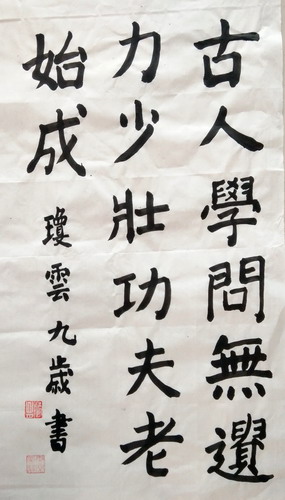 古人學問無遺
力少壯功夫老
始成
瓊雲九歲書